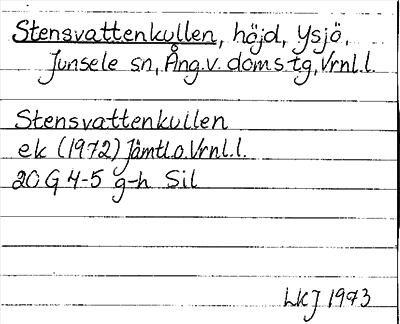 Stensvattenkullen, höjd, Ysjö,
Junsele sn, Ång.v. domstg, Vrnl.l.
Stensvattenkullen
ek (1972) Jämtl.o.Vrnl.l.
20 G 4-5 g-h Sil
LKJ 1973